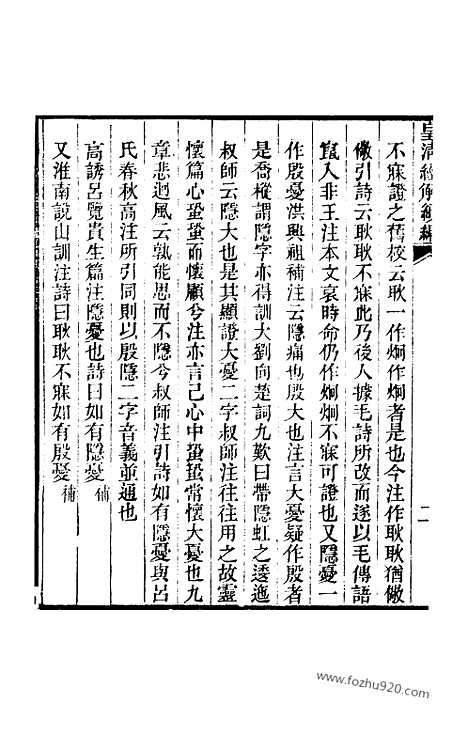 皇清經解續編
二
不寐證之舊校云耿一作炯作炯者是也今注作耿耿猶儆
儆引詩云耿耿不寐此乃後人據毛詩所改而遂以毛傳語
竄入非王注本文哀時命仍作炯炯不寐可證也又隱憂一
作殷憂洪興祖補注云隱痛也殷大也注言大憂疑作殷者
是喬樅謂隱字亦得訓大劉向楚詞九歎曰帶隱虹之逶迤
叔師云隱大也是其顯證大憂二字叔師注往往用之故靈
懷篇心蛩蛩而懷顧兮注亦言己心中蛩蛩常懷大憂也九
章悲迴風云孰能思而不隱兮叔師注引詩如有隱憂與呂
氏春秋高注所引同則以殷隱二字音義並通也
高誘呂覽貴生篇注隱憂也詩曰如有隱憂補
又淮南說山訓注詩曰耿耿不寐如有殷憂補
www.fozhu920.com